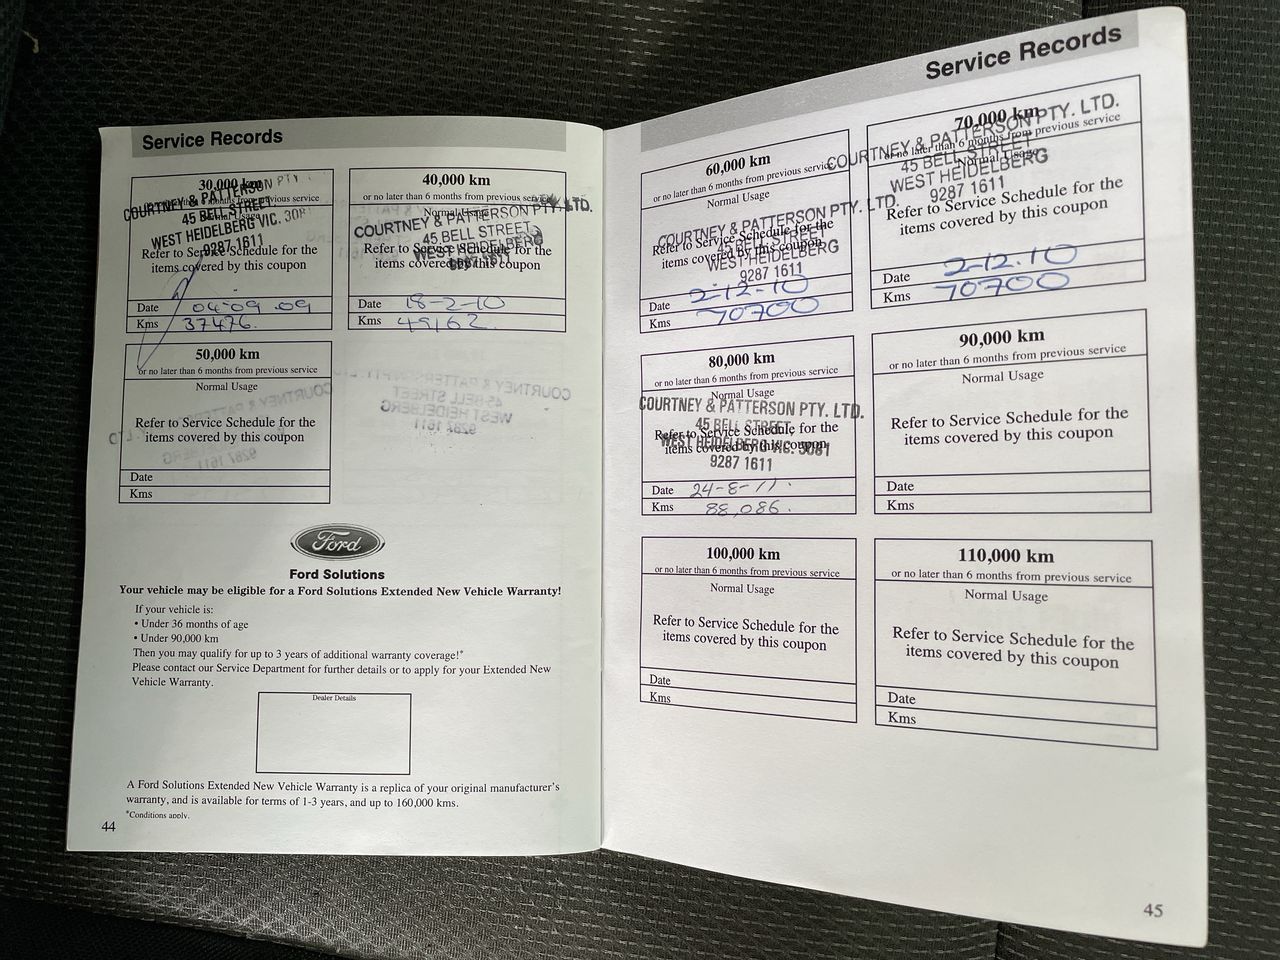 Service Records
30,000 km
or no later than 6 months from previous service
Normal Usage
COURTNEY & PATTERSON PTY.
45 BELL STREET,
WEST HEIDELBERG VIC.
9287 1611
Refer to Service Schedule for the
items covered by this coupon
Date 04-09-09
Kms 37476.
40,000 km
or no later than 6 months from previous service
Normal Usage
COURTNEY & PATTERSON PTY. LTD.
45 BELL STREET,
WEST HEIDELBERG
9287 1611
Refer to Service Schedule for the
items covered by this coupon
Date 18-2-10
Kms 49162.
50,000 km
or no later than 6 months from previous service
Normal Usage
Refer to Service Schedule for the
items covered by this coupon
Date
Kms
Ford
Ford Solutions
Your vehicle may be eligible for a Ford Solutions Extended New Vehicle Warranty!
If your vehicle is:
• Under 36 months of age
• Under 90,000 km
Then you may qualify for up to 3 years of additional warranty coverage!*
Please contact our Service Department for further details or to apply for your Extended New
Vehicle Warranty.
Dealer Details
A Ford Solutions Extended New Vehicle Warranty is a replica of your original manufacturer's
warranty, and is available for terms of 1-3 years, and up to 160,000 kms.
*Conditions apply.
44
Service Records
60,000 km
or no later than 6 months from previous service
Normal Usage
COURTNEY & PATTERSON PTY. LTD.
45 BELL STREET
WEST HEIDELBERG
9287 1611
Refer to Service Schedule for the
items covered by this coupon
Date 2-12-10
Kms 70700
70,000 km
or no later than 6 months from previous service
Normal Usage
COURTNEY & PATTERSON PTY. LTD.
45 BELL STREET
WEST HEIDELBERG
9287 1611
Refer to Service Schedule for the
items covered by this coupon
Date 2-12.10
Kms 70700
80,000 km
or no later than 6 months from previous service
Normal Usage
COURTNEY & PATTERSON PTY. LTD.
45 BELL STREET,
WEST HEIDELBERG VIC. 3081
9287 1611
Refer to Service Schedule for the
items covered by this coupon
Date 24-8-11.
Kms 88,086.
90,000 km
or no later than 6 months from previous service
Normal Usage
Refer to Service Schedule for the
items covered by this coupon
Date
Kms
100,000 km
or no later than 6 months from previous service
Normal Usage
Refer to Service Schedule for the
items covered by this coupon
Date
Kms
110,000 km
or no later than 6 months from previous service
Normal Usage
Refer to Service Schedule for the
items covered by this coupon
Date
Kms
45